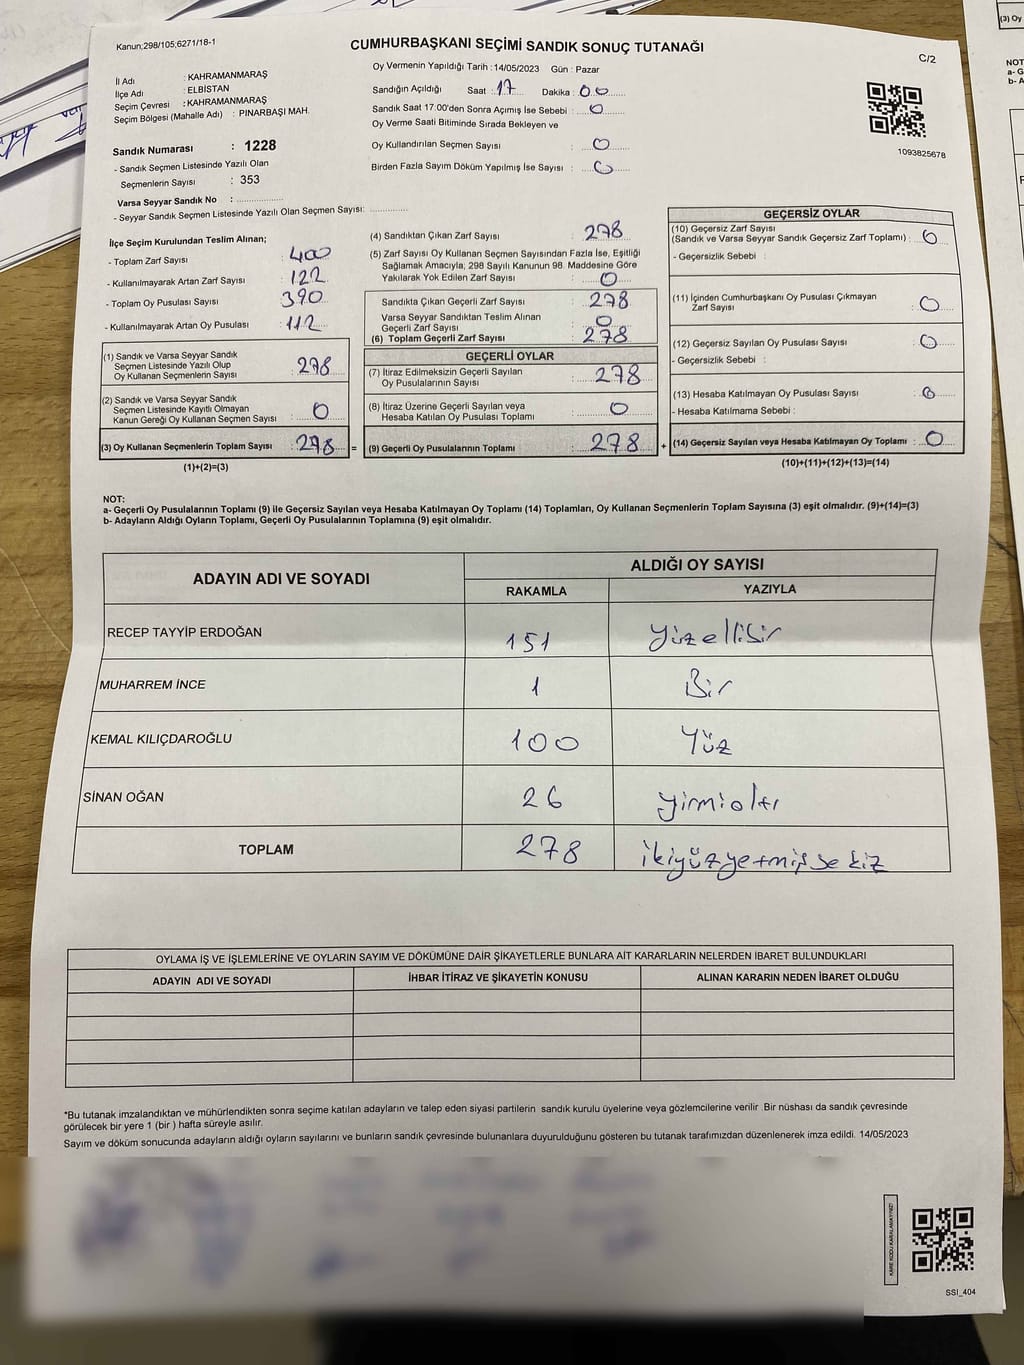 Kanun;298/105;6271/18-1
CUMHURBAŞKANI SEÇİMİ SANDIK SONUÇ TUTANAĞI
C/2
İl Adı : KAHRAMANMARAŞ
İlçe Adı : ELBİSTAN
Seçim Çevresi : KAHRAMANMARAŞ
Seçim Bölgesi (Mahalle Adı) : PINARBAŞI MAH.
Sandık Numarası : 1228
- Sandık Seçmen Listesinde Yazılı Olan
Seçmenlerin Sayısı : 353
Varsa Seyyar Sandık No :
- Seyyar Sandık Seçmen Listesinde Yazılı Olan Seçmen Sayısı:
Oy Vermenin Yapıldığı Tarih : 14/05/2023 Gün : Pazar
Sandığın Açıldığı Saat : 17 Dakika : 00
Sandık Saat 17.00'den Sonra Açımış İse Sebebi : 0
Oy Verme Saati Bitiminde Sırada Bekleyen ve
Oy Kullandırılan Seçmen Sayısı : 0
Birden Fazla Sayım Döküm Yapılmış İse Sayısı : 0
1093825678
İlçe Seçim Kurulundan Teslim Alınan;
- Toplam Zarf Sayısı : 400
- Kullanılmayarak Artan Zarf Sayısı : 122
- Toplam Oy Pusulası Sayısı : 390
- Kullanılmayarak Artan Oy Pusulası : 112
(1) Sandık ve Varsa Seyyar Sandık
Seçmen Listesinde Yazılı Olup
Oy Kullanan Seçmenlerin Sayısı : 278
(2) Sandık ve Varsa Seyyar Sandık
Seçmen Listesinde Kayıtlı Olmayan
Kanun Gereği Oy Kullanan Seçmen Sayısı : 0
(3) Oy Kullanan Seçmenlerin Toplam Sayısı : 278 =
(1)+(2)=(3)
(4) Sandıktan Çıkan Zarf Sayısı : 278
(5) Zarf Sayısı Oy Kullanan Seçmen Sayısından Fazla İse, Eşitliği
Sağlamak Amacıyla, 298 Sayılı Kanunun 98. Maddesine Göre
Yakılarak Yok Edilen Zarf Sayısı : 0
Sandıkta Çıkan Geçerli Zarf Sayısı : 278
Varsa Seyyar Sandıktan Teslim Alınan
Geçerli Zarf Sayısı : 0
(6) Toplam Geçerli Zarf Sayısı : 278
GEÇERLİ OYLAR
(7) İtiraz Edilmeksizin Geçerli Sayılan
Oy Pusulalarının Sayısı : 278
(8) İtiraz Üzerine Geçerli Sayılan veya
Hesaba Katılan Oy Pusulası Toplamı : 0
(9) Geçerli Oy Pusulalarının Toplamı : 278 +
GEÇERSİZ OYLAR
(10) Geçersiz Zarf Sayısı
(Sandık ve Varsa Seyyar Sandık Geçersiz Zarf Toplamı) : 0
- Geçersizlik Sebebi :
(11) İçinden Cumhurbaşkanı Oy Pusulası Çıkmayan
Zarf Sayısı : 0
(12) Geçersiz Sayılan Oy Pusulası Sayısı : 0
- Geçersizlik Sebebi :
(13) Hesaba Katılmayan Oy Pusulası Sayısı : 0
- Hesaba Katılmama Sebebi :
(14) Geçersiz Sayılan veya Hesaba Katılmayan Oy Toplamı : 0
(10)+(11)+(12)+(13)=(14)
NOT:
a- Geçerli Oy Pusulalarının Toplamı (9) ile Geçersiz Sayılan veya Hesaba Katılmayan Oy Toplamı (14) Toplamları, Oy Kullanan Seçmenlerin Toplam Sayısına (3) eşit olmalıdır. (9)+(14)=(3)
b- Adayların Aldığı Oyların Toplamı, Geçerli Oy Pusulalarının Toplamına (9) eşit olmalıdır.
ADAYIN ADI VE SOYADI ALDIĞI OY SAYISI
RAKAMLA YAZIYLA
RECEP TAYYİP ERDOĞAN 151 yüzellibir
MUHARREM İNCE 1 Bir
KEMAL KILIÇDAROĞLU 100 Yüz
SİNAN OĞAN 26 yirmialtı
TOPLAM 278 ikiyüzyetmişsekiz
OYLAMA İŞ VE İŞLEMLERİNE VE OYLARIN SAYIM VE DÖKÜMÜNE DAİR ŞİKAYETLERLE BUNLARA AİT KARARLARIN NELERDEN İBARET BULUNDUKLARI
ADAYIN ADI VE SOYADI İHBAR İTİRAZ VE ŞİKAYETİN KONUSU ALINAN KARARIN NEDEN İBARET OLDUĞU
*Bu tutanak imzalandıktan ve mühürlendikten sonra seçime katılan adayların ve talep eden siyasi partilerin sandık kurulu üyelerine veya gözlemcilerine verilir .Bir nüshası da sandık çevresinde
görülecek bir yere 1 (bir ) hafta süreyle asılır.
Sayım ve döküm sonucunda adayların aldığı oyların sayılarını ve bunların sandık çevresinde bulunanlara duyurulduğunu gösteren bu tutanak tarafımızdan düzenlenerek imza edildi. 14/05/2023
KARE KODU KARALAMAYINIZ!
SSI_404